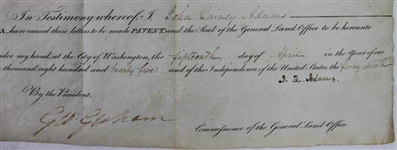 In Testimony whereof, I, John Quincy Adams
A, have caused these letters to be made PATENT, and the Seal of the General Land Office to be hereunto
under my hand, at the City of Washington, the fifteenth day of April in the Year of our
thousand eight hundred and twenty five and of the Independence of the United States the forty ninth
J. Q. Adams
By the President,
Geo. Graham
Commissioner of the General Land Office.